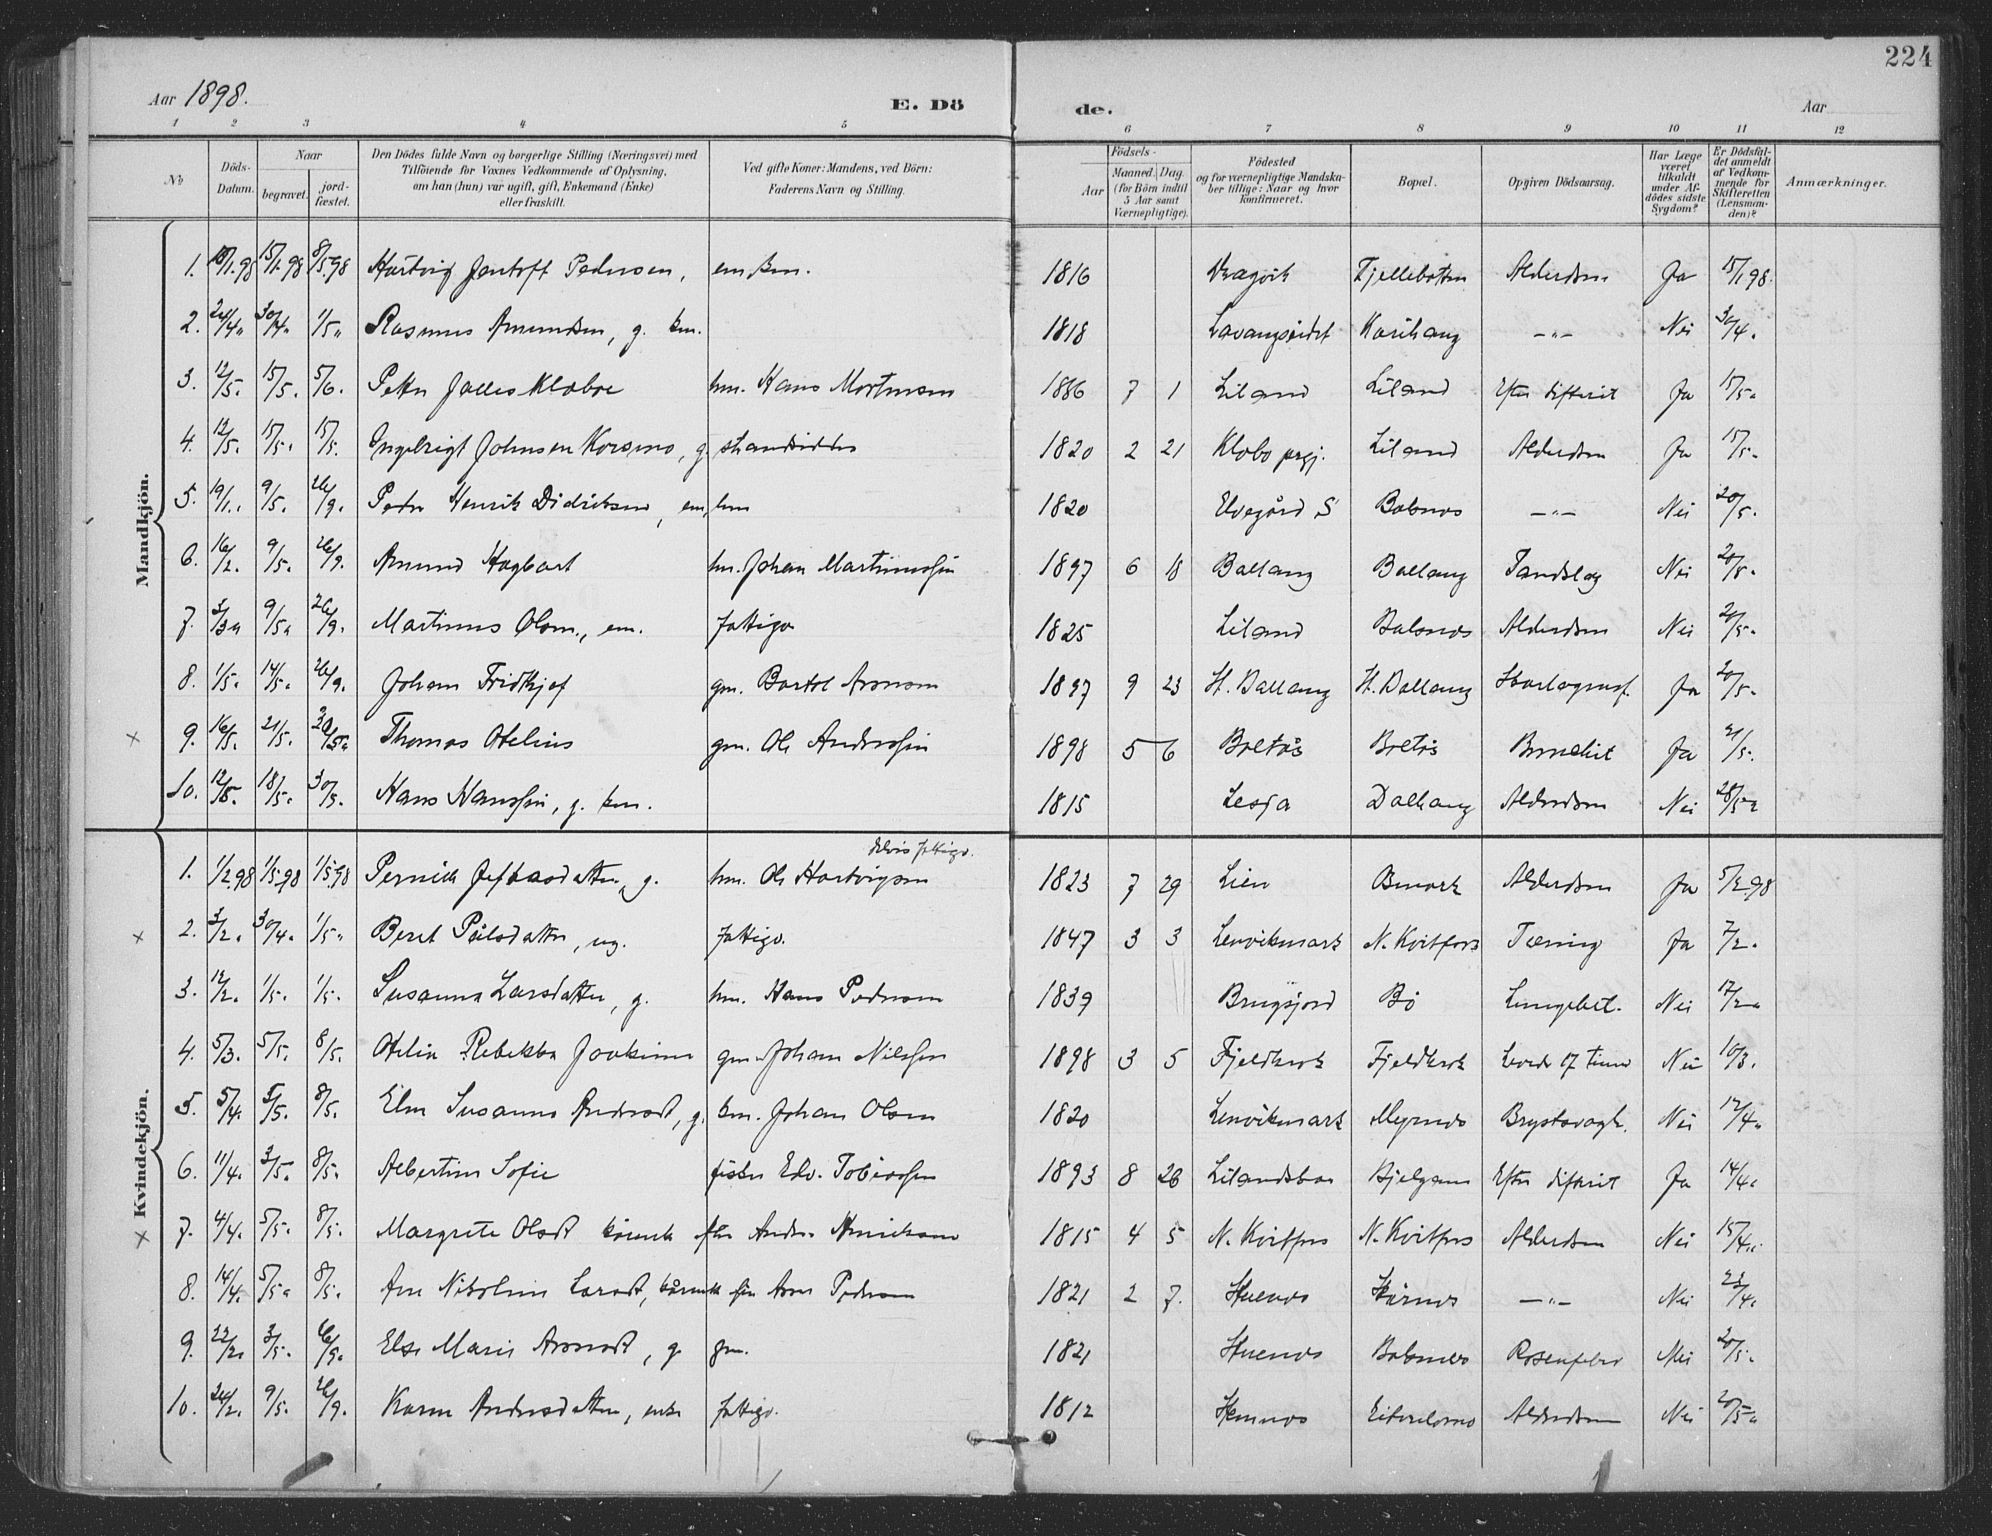 224
Aar 1898.
E. Dö de.
Aar
1 2 3 4 5 6 7 8 9 10 11 12
No
Döds-Datum.
Naar
begravet.
jord-fæstet.
Den Dödes fulde Navn og borgerlige Stilling (Næringsvei) med
Tilföiende for Voxnes Vedkommende af Oplysning,
om han (hun) var ugift, gift, Enkemand (Enke)
eller fraskilt.
Ved gifte Koner: Mandens, ved Börn:
Faderens Navn og Stilling.
Födsels-
Aar
Maaned. Dag.
(for Börn indtil
5 Aar samt
Værnepligtige).
Födested
og for værnepligtige Mandska-
ber tillige: Naar og hvor
konfirmeret.
Bopæl.
Opgiven Dödsaarsag.
Har Læge
været
tilkaldt
under Af-
dödes sidste
Sygdom?
Er Dödsfal-
det anmeldt
af Vedkom-
mende for
Skifteretten
(Lensman-
den)?
Anmærkninger.
Mandkjön.
1. 15/1.98 8/5.98 Hartvig Jentoft Pedersen, em. 1816 Fjellebotten Alderdom Ja 15/1 98.
2. 24/4 " 30/4 " 1/5 " Rasmus Amundsen, g. km. 1818 Lavangseidet Karihaug —"— Nei 30/4.
3. 12/5. 15/5. 5/6. Peter Jalles Klæboe hm. Hans Mortensen 1886 7 1 Liland Liland Efter difterit Ja 15/5.
4. 12/5. 15/5. 15/5. Ingebrigt Johnsen Korsmo, g. strandsidder 1820 2 21 Klæbo prgj. Liland Alderdom Ja 15/5.
5. 19/1. 9/5. 26/9. Peder Henrik Didriksen, em. 1820 Elvegård S Balsnes —"— Nei 20/5.
6. 16/2. 9/5. 26/9. Amund Hagbart hm. Johan Martinussen 1897 6 18 Ballang Ballang Tandslag Nei 20/5.
7. 3/3 " 9/5 " 26/9. Martinus Olsen, em. fattigv. 1825 Liland Balsnes Alderdom Nei 20/5.
8. 1/5. 14/5. 26/9. Johan Fridthjof gm. Bartol Aronsen 1897 9 23 H. Ballang H. Ballang Ja 20/5.
× 9. 16/5. 21/5. Thomas Otelius gm. Ole Anderssen 1898 5 6 Bretås Bretås Ja 21/5.
10. 18/5. 30/5. Hans Hanssen, g. km. 1815 Lesja Dalhaug Alderdom Nei 28/5
Kvindekjön.
delvis fattigv.
1. 1/2 98 1/5 98 1/5 98 Pernille Jeftasdatter, g. hm. Ole Hartvigsen 1823 7 29 Lien Alderdom Ja 5/2 98
× 2. 3/2. 30/4. 1/5. Beret Pålsdatter, ug. fattigv. 1847 3 3 Lenvikmark N. Kvitfors Tæring Ja 7/2.
3. 12/2. 1/5. 1/5. Susanna Larsdatter, g. hm. Hans Pedersen 1839 Bø Lungebet. Nei 17/2
4. 5/3. 5/5. 8/5. Otelia Rebekka Joakima gm. Johan Nilssen 1898 3 5 Fjeldkrok Fjeldkrok Levede 17 timer Nei 10/3.
5. 5/4. 5/5. 8/5. Elen Susanna Andersdt, g. km. Johan Olsen 1820 Lenvikmark Myrnes Nei 12/4.
6. 11/4. 3/5. 8/5. Albertine Sofie fisker Edv. Tobiassen 1893 8 26 Efter difterit Ja 14/4.
× 7. 4/4. 5/5. 8/5. Margrete Olsdt kårenk. efter Anders Henriksen 1815 4 5 N. Kvitfors N. Kvitfors Alderdom Nei 15/4.
8. 14/4. 5/5. 8/5. Ane Nikoline Larsdt, kårenk. Pedersen 1821 2 7. Huenes —"— Nei 23/4.
9. 22/2. 3/5. 26/9. Else Marie Aronsdt, g. gm. 1821 Huenes Balsnes Rosenfeber Nei 20/5.
10. 24/2. 9/5. 26/9. Karen Andersdatter, enke fattigv. 1812 Alderdom Nei 20/5.